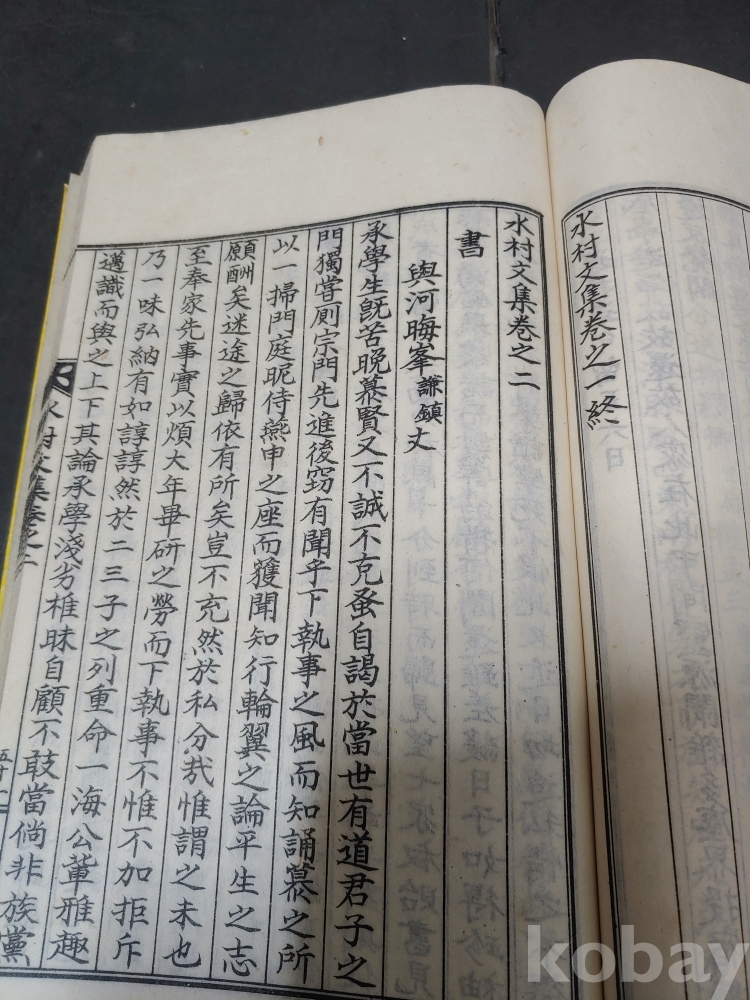 水村文集卷之一終
水村文集卷之二
書
與河晦峯謙鎭丈
承學生旣苦晚慕賢又不誠不克蚤自謁於當世有道君子之
門獨嘗厠宗門先進後窃有聞乎下執事之風而知誦慕之所
以一掃門庭昵侍燕申之座而獲聞知行輪翼之論平生之志
願酬矣迷途之歸依有所矣豈不充然於私分哉惟謂之未也
至奉家先事實以煩大年畢研之勞而下執事不惟不加拒斥
乃一味弘納有如諄諄然於二三子之列重命一海公輩雅趣
邁識而與之上下其論承學淺劣椎昧自顧不敢當倘非族黨
水村文集卷之二
kobay